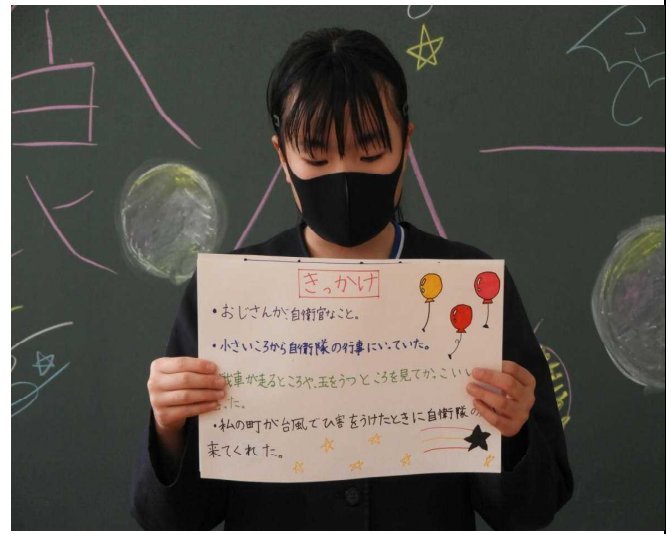 きっかけ
・おじさんが自衛官なこと。
・小さいころから自衛隊の行事にいっていた。
車が走るところや、玉をうつところを見てかっこいい
た。
・私の町が台風でひ害をうけたときに自衛隊の
来てくれた。